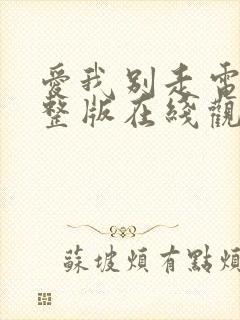 愛我別走電
整版在綫觀
蘇坡煩有點煩